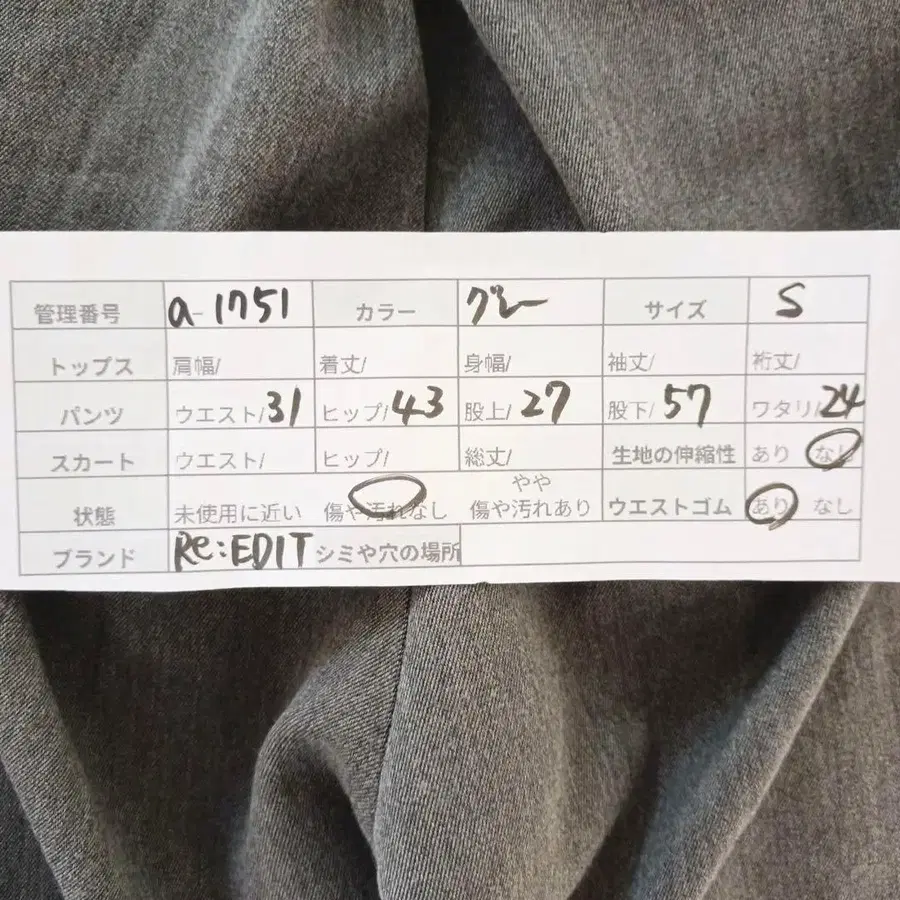 管理番号 a-1751 カラー グレー サイズ S
トップス 肩幅/ 着丈/ 身幅/ 袖丈/ 裄丈/
パンツ ウエスト/31 ヒップ/43 股上/27 股下/57 ワタリ/24
スカート ウエスト/ ヒップ/ 総丈/ 生地の伸縮性 あり なし
状態 未使用に近い 傷や汚れなし やや傷や汚れあり ウエストゴム あり なし
ブランド Re:EDIT シミや穴の場所